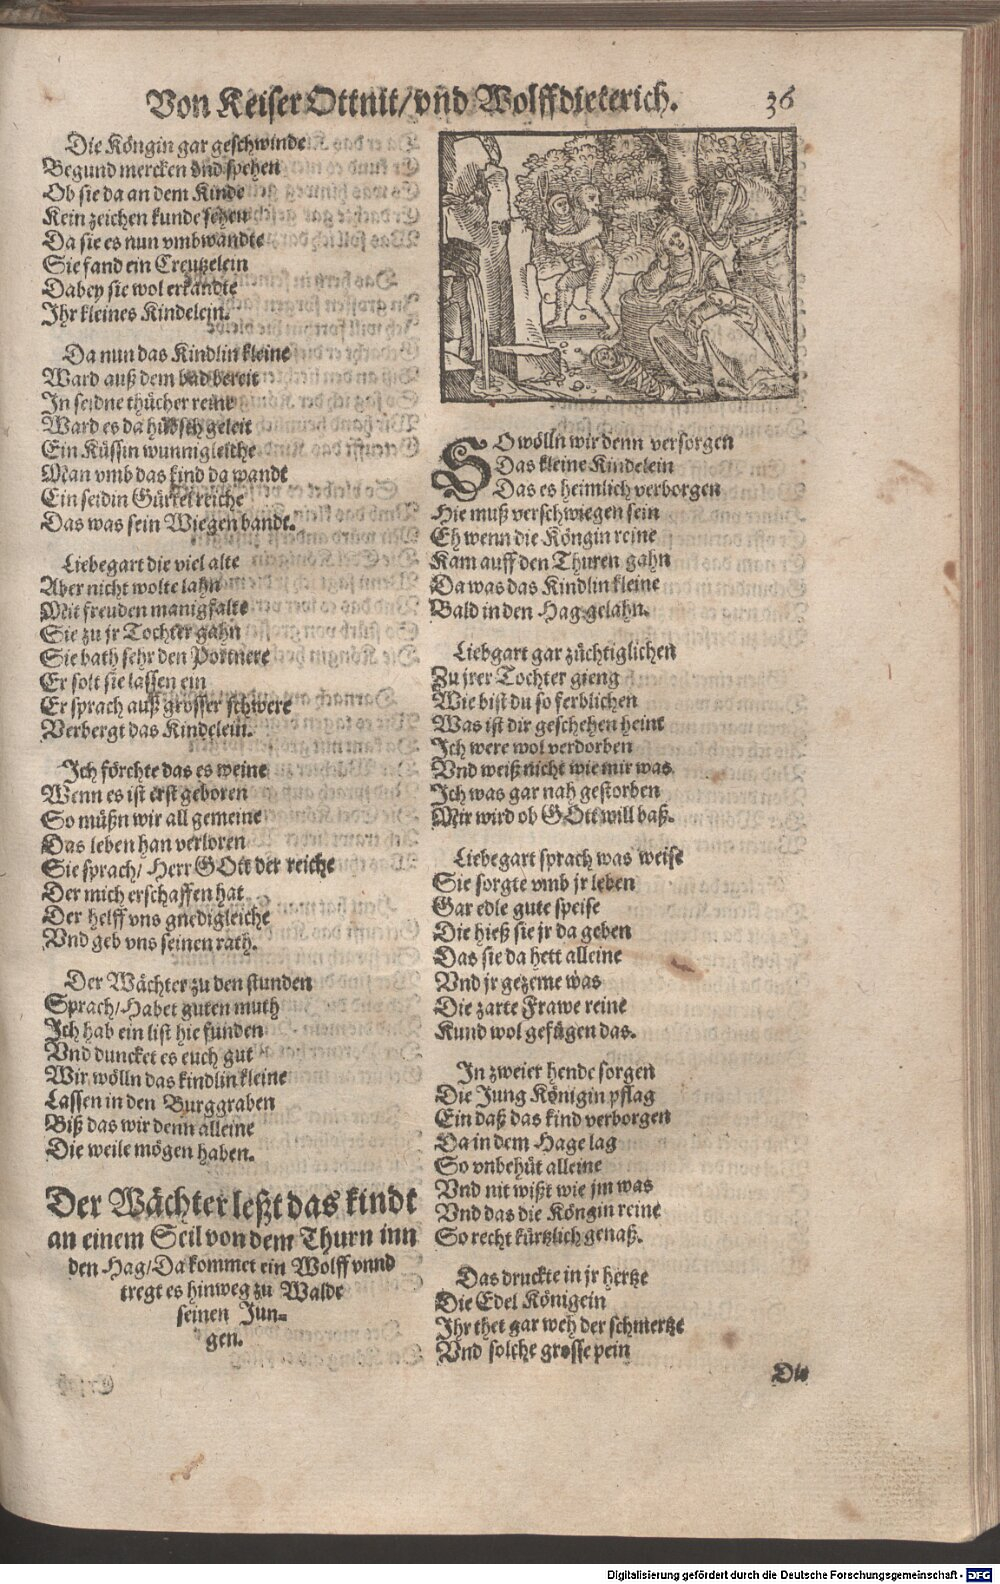 Von Keiser Ottnit/ vnd Wolffdieterich. 36
Die Köngin gar geschwinde
Begund mercken vnd spehen
Ob sie da an dem Kinde
Kein zeichen kunde sehen
Da sie es nun vmbwandte
Sie fand ein Creutzelein
Dabey sie wol erkandte
Ihr kleines Kindelein.
Da nun das Kindlin kleine
Ward auß dem bad bereit
In seidne thücher reine
Ward es da hübsch geleit
Ein Küssin wunnigleiche
Man vmb das kind da wandt
Ein seidin Gürtel reiche
Das was sein Wiegen bandt.
Liebegart die viel alte
Aber nicht wolte lahn
Mit freuden manigfalte
Sie zu jr Tochter gahn
Sie bath sehr den Portnere
Er solt sie lassen ein
Er sprach auß grosser schwere
Verbergt das Kindelein.
Ich förchte das es weine
Wenn es ist erst geboren
So müßn wir all gemeine
Das leben han verloren
Sie sprach/ Herr GOtt der reiche
Der mich erschaffen hat
Der helff vns gnedigleiche
Vnd geb vns seinen rath.
Der Wächter zu den stunden
Sprach/ Habet guten muth
Ich hab ein list hie funden
Vnd duncket es euch gut
Wir wölln das kindlin kleine
Lassen in den Burggraben
Biß das wir denn alleine
Die weile mögen haben.
Der Wächter leßt das kindt
an einem Seil von dem Thurn inn
den Hag/ Da kommet ein Wolff vnnd
tregt es hinweg zu Walde
seinen Jun-
gen.
SO wölln wir denn versorgen
Das kleine Kindelein
Das es heimlich verborgen
Hie muß verschwiegen sein
Eh wenn die Köngin reine
Kam auff den Thuren gahn
Da was das Kindlin kleine
Bald in den Hag gelahn.
Liebgart gar züchtiglichen
Zu jrer Tochter gieng
Wie bist du so ferblichen
Was ist dir geschehen heint
Ich were wol verdorben
Vnd weiß nicht wie mir was
Ich was gar nah gestorben
Mir wird ob GOtt will baß.
Liebegart sprach was weise
Sie sorgte vmb jr leben
Gar edle gute speise
Die hieß sie jr da geben
Das sie da hett alleine
Vnd jr gezeme was
Die zarte Frawe reine
Kund wol gefügen das.
In zweier hende sorgen
Die Jung Königin pflag
Ein daß das kind verborgen
Da in dem Hage lag
So vnbehüt alleine
Vnd nit wißt wie jm was
Vnd das die Köngin reine
So recht kürtzlich genaß.
Das druckte in jr hertze
Die Edel Königein
Ihr thet gar weh der schmertze
Vnd solche grosse pein
Die
Digitalisierung gefördert durch die Deutsche Forschungsgemeinschaft - DFG